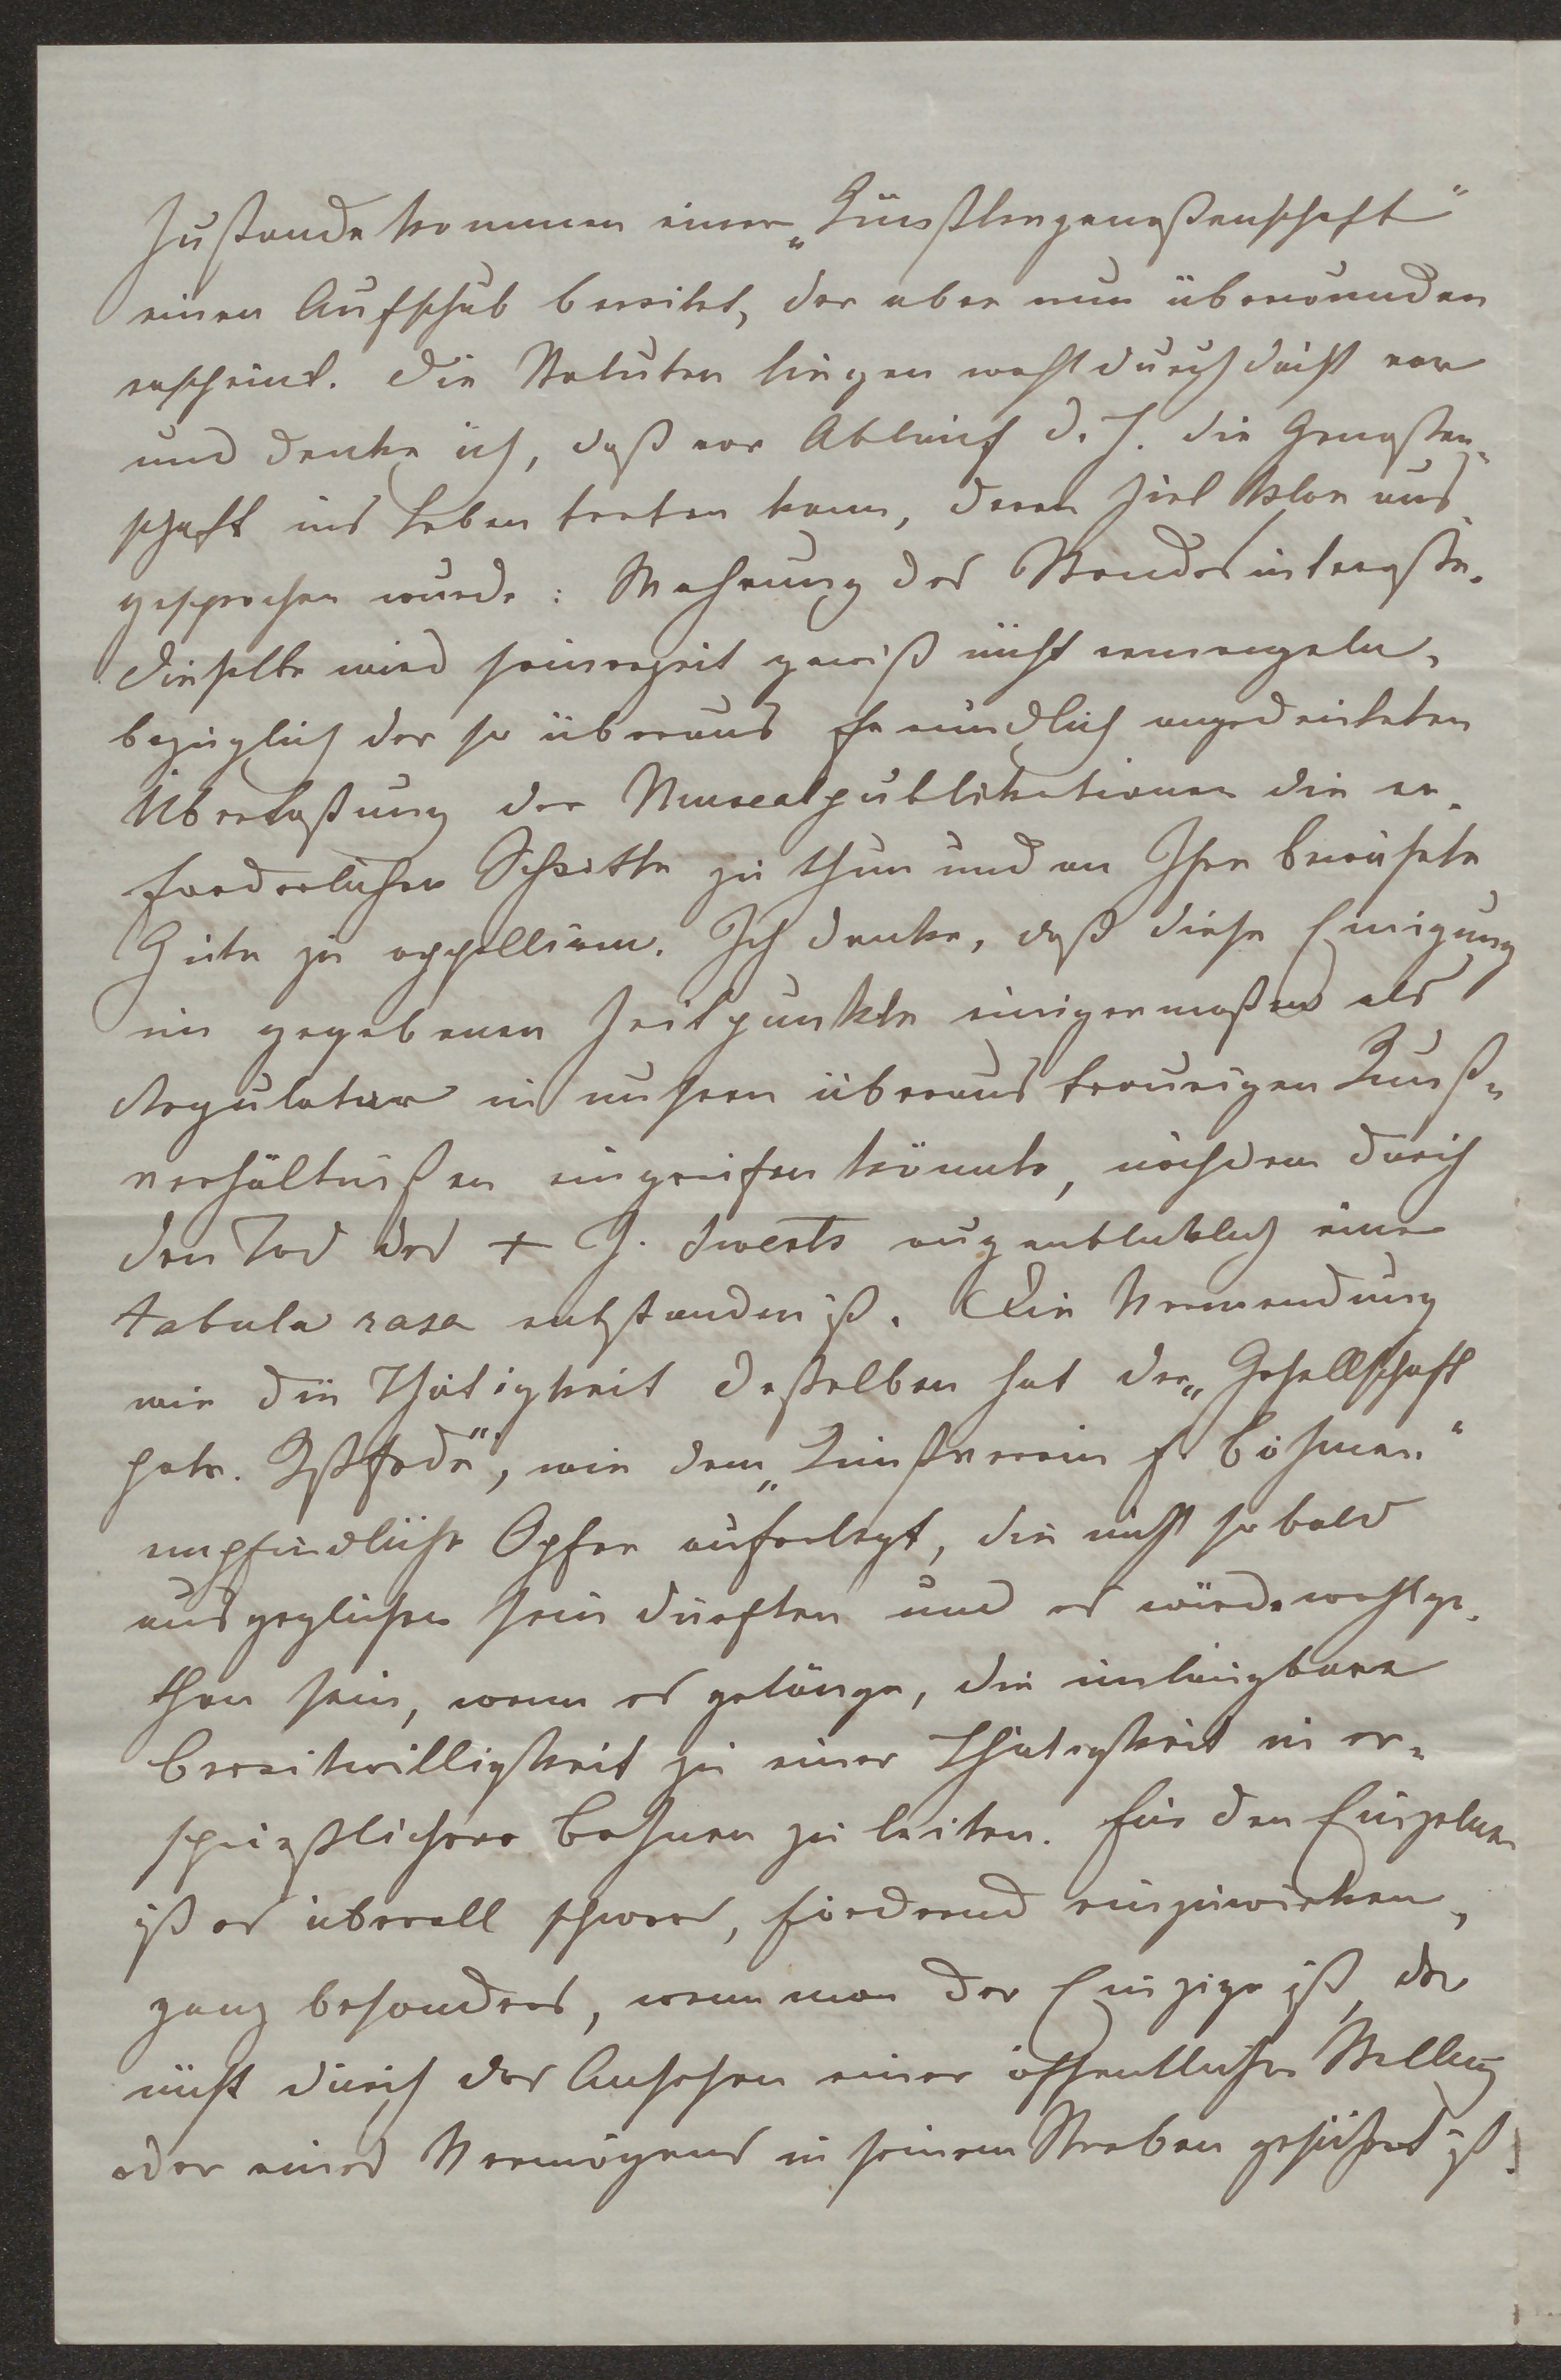 Zustandekommen einer „Künstlergenoßenschaft“
einen Aufschub bereitet, der aber nun überwunden
erscheint. Die Statuten liegen wohldurchdacht vor
und denke ich, daß vor Ablauf d. J. die Genoßen„
schaft ins Leben treten kann, deren Ziel klar aus„
gesprochen wurde: Wahrung der Standesinteressen.
Dieselbe wird seinerzeit gewiß nicht ermangeln,
bezüglich der so überaus freundlich angedeuteten
Überlaßung der Musealpublikationen die er„
forderlichen Schritte zu thun und an Ihre bewährte
Güte zu appelliren. Ich denke, daß diese Einigung
im gegebenen Zeitpunkte einigermaßen als
Regulator in unseren überaus traurigen Kunst„
verhältnißen eingreifen könnte, nachdem durch
den Tod des + J. Swerts augenblicklich eine
tabula rasa entstanden ist. Die Verwendung
wie die Thätigkeit deßelben hat der „Gesellschaft
patr. Kstfrde“, wie dem „Kunstverein f. Böhmen“
empfindliche Opfer auferlegt, die nicht so bald
ausgeglichen sein dürften und es würde wohlge„
than sein, wenn es gelänge, die unläugbare
Bereitwilligkeit zu einer Thätigkeit in er„
sprießlichere Bahnen zu leiten. Für den Einzelnen
ist es überall schwer, fördernd einzuwirken,
ganz besonders, wenn man der Einzige ist, der
nicht durch das Ansehen einer öffentlichen Stellung
oder eines Vermögens in seinem Streben gesichert ist.